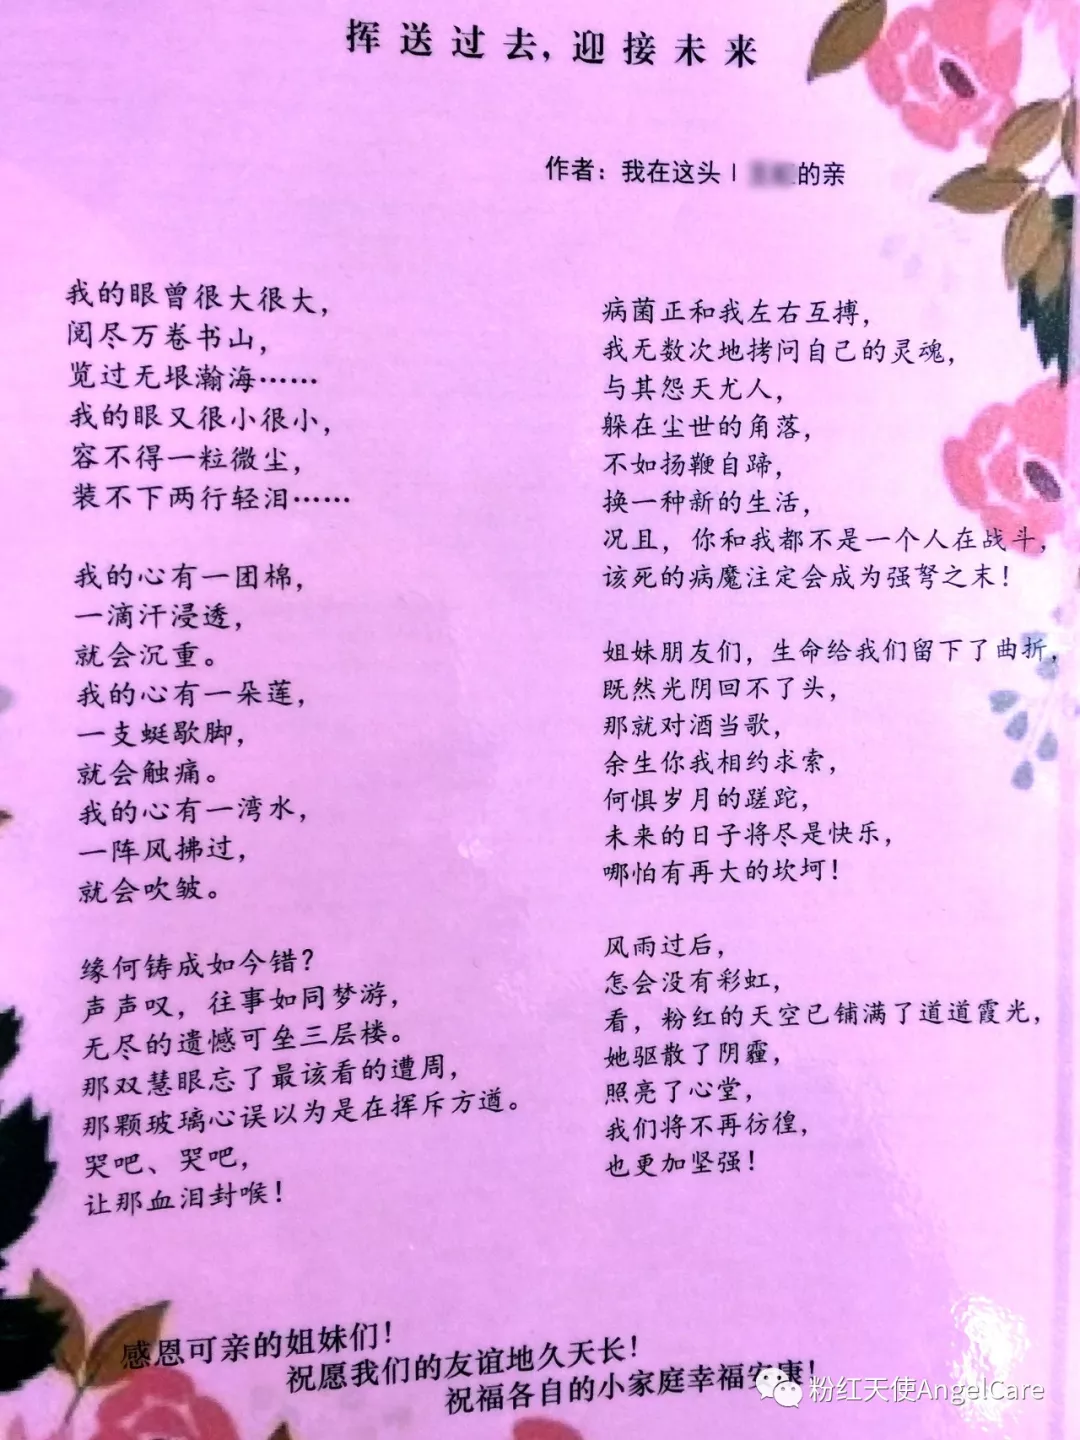 挥送过去，迎接未来
作者：我在这头｜的亲
我的眼曾很大很大，
阅尽万卷书山，
览过无垠瀚海……
我的眼又很小很小，
容不得一粒微尘，
装不下两行轻泪……
我的心有一团棉，
一滴汗浸透，
就会沉重。
我的心有一朵莲，
一支蜓歇脚，
就会触痛。
我的心有一湾水，
一阵风拂过，
就会吹皱。
缘何铸成如今错？
声声叹，往事如同梦游，
无尽的遗憾可垒三层楼。
那双慧眼忘了最该看的遭周，
那颗玻璃心误以为是在挥斥方遒。
哭吧、哭吧，
让那血泪封喉！
病菌正和我左右互搏，
我无数次地拷问自己的灵魂，
与其怨天尤人，
躲在尘世的角落，
不如扬鞭自蹄，
换一种新的生活，
况且，你和我都不是一个人在战斗，
该死的病魔注定会成为强弩之末！
姐妹朋友们，生命给我们留下了曲折，
既然光阴回不了头，
那就对酒当歌，
余生你我相约求索，
何惧岁月的蹉跎，
未来的日子将尽是快乐，
哪怕有再大的坎坷！
风雨过后，
怎会没有彩虹，
看，粉红的天空已铺满了道道霞光，
她驱散了阴霾，
照亮了心堂，
我们将不再彷徨，
也更加坚强！
感恩可亲的姐妹们！
祝愿我们的友谊地久天长！
祝福各自的小家庭幸福安康！
粉红天使AngelCare